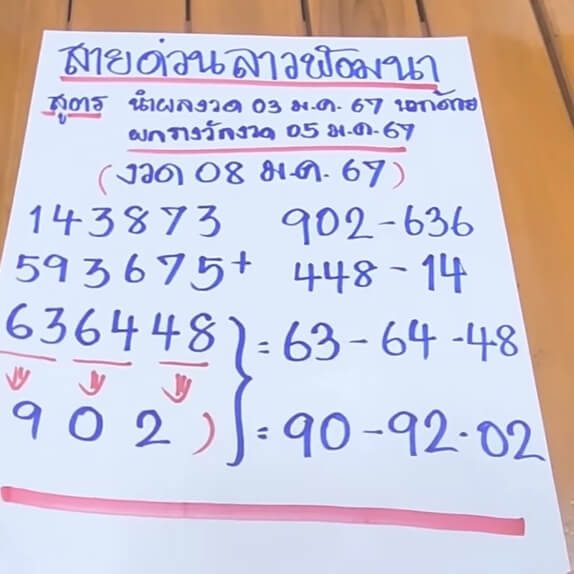 สายด่วนลาวพัฒนา
สูตร นำผลงวด 03 ม.ค. 67 บอกด้วย
ผลรางวัลงวด 05 ม.ค. 67
(งวด 08 ม.ค. 67)
143873 902-636
593675+ 448-14
636448 } = 63-64-48
902) = 90-92.02